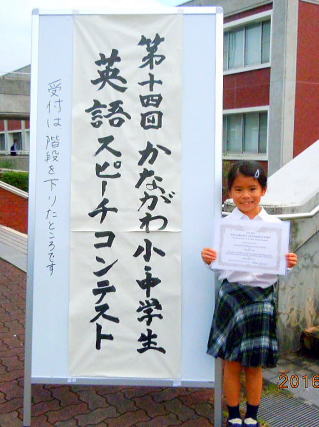 第十四回 かながわ小・中学生
英語スピーチコンテスト
受付は 階段を下りたところです
2016